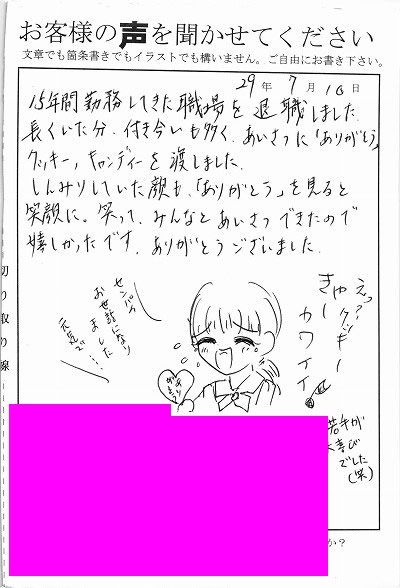 お客様の声を聞かせてください
文章でも箇条書きでもイラストでも構いません。ご自由にお書き下さい。
29年 7月 10日
15年間勤務してきた職場を退職しました
長くいた分、付き合いも多く、あいさつに「ありがとう」
クッキー、キャンディーを渡しました。
しんみりしていた顔も、「ありがとう」を見ると
笑顔に。笑って、みんなとあいさつできたので
嬉しかったです。ありがとうございました。
えっ?クッキー
きゃー
カワイイ
センパイ
お世話になり
ました
元気で…
ありがとう
若手が
大喜び
でした
(笑)
切り取り線
か?